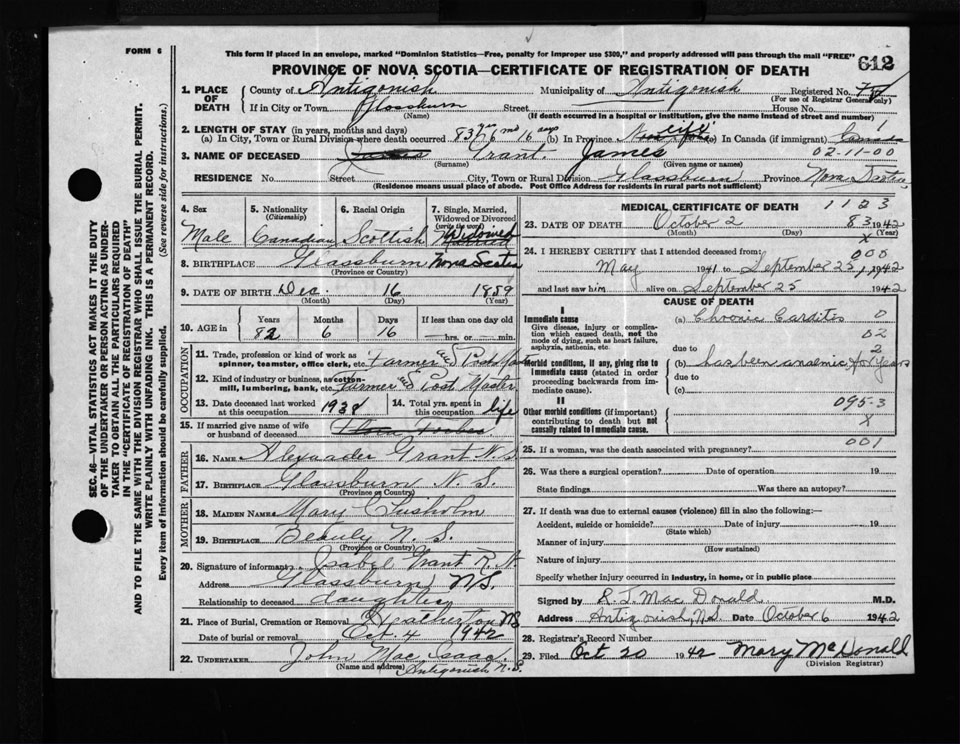 FORM 6
This form if placed in an envelope, marked "Dominion Statistics—Free, penalty for improper use $300," and properly addressed will pass through the mail "FREE"
612
PROVINCE OF NOVA SCOTIA—CERTIFICATE OF REGISTRATION OF DEATH
1. PLACE OF DEATH County of Antigonish Municipality of Antigonish Registered No.
(For use of Registrar General only)
If in City or Town Glassburn Street House No.
(Name) (If death occurred in a hospital or institution, give its name instead of street and number)
2. LENGTH OF STAY (in years, months and days)
(a) In City, Town or Rural Division where death occurred 83 yrs 6 mo 16 days (b) In Province life (c) In Canada (if immigrant)
1
3. NAME OF DECEASED Grant. James 02-11-00
(Surname) (Given name or names)
RESIDENCE No. Street City, Town or Rural Division Glassburn Province Nova Scotia
(Residence means usual place of abode. Post Office Address for residents in rural parts not sufficient)
4. Sex Male
5. Nationality (Citizenship) Canadian
6. Racial Origin Scottish
7. Single, Married, Widowed or Divorced (write the word) Widowed
8. BIRTHPLACE Glassburn Nova Scotia
(Province or Country)
9. DATE OF BIRTH Dec. 16 1859
(Month) (Day) (Year)
10. AGE in Years Months Days If less than one day old
82 6 16 hrs. or min.
OCCUPATION
11. Trade, profession or kind of work as spinner, teamster, office clerk, etc. Farmer and Post Master
12. Kind of industry or business, as cotton-mill, lumbering, bank, etc. Farmer and Post Master
13. Date deceased last worked at this occupation 1938
14. Total yrs. spent in this occupation life
15. If married give name of wife or husband of deceased
FATHER
16. NAME Alexander Grant N.S.
17. BIRTHPLACE Glassburn N. S.
(Province or Country)
MOTHER
18. MAIDEN NAME Mary Chisholm
19. BIRTHPLACE Beauly N. S.
(Province or Country)
20. Signature of informant Isabel Grant R.N.
Address Glassburn NS.
Relationship to deceased daughter
21. Place of Burial, Cremation or Removal Heatherton NS
Date of burial or removal Oct. 4 1942
22. UNDERTAKER John Mac Isaac.
(Name and address) Antigonish N.S.
MEDICAL CERTIFICATE OF DEATH 1123
23. DATE OF DEATH October 2 83 1942
(Month) (Day) (Year)
X
24. I HEREBY CERTIFY that I attended deceased from: 000
May 1941 to September 25, 1942
and last saw him alive on September 25 1942
CAUSE OF DEATH
I
Immediate cause
Give disease, injury or complication which caused death, not the mode of dying, such as heart failure, asphyxia, asthenia, etc.
(a) Chronic Carditis 0
02
due to 2
Morbid conditions, if any, giving rise to immediate cause (stated in order proceeding backwards from immediate cause).
(b) has been anaemic for years
due to
(c)
II
Other morbid conditions (if important) contributing to death but not causally related to immediate cause.
095-3
X
25. If a woman, was the death associated with pregnancy? 001
26. Was there a surgical operation? Date of operation 19
State findings Was there an autopsy?
27. If death was due to external causes (violence) fill in also the following:—
Accident, suicide or homicide? Date of injury 19
(State which)
Manner of injury
(How sustained)
Nature of injury
Specify whether injury occurred in industry, in home, or in public place
Signed by R. J. Mac Donald M.D.
Address Antigonish, N.S. Date October 6 1942
28. Registrar's Record Number
29. Filed Oct 20 1942 Mary McDonald
(Division Registrar)
SEC. 46—VITAL STATISTICS ACT MAKES IT THE DUTY
OF THE UNDERTAKER OR PERSON ACTING AS UNDERTAKER TO OBTAIN ALL THE PARTICULARS REQUIRED
IN THE "CERTIFICATE OF REGISTRATION OF DEATH"
AND TO FILE THE SAME WITH THE DIVISION REGISTRAR WHO SHALL ISSUE THE BURIAL PERMIT.
WRITE PLAINLY WITH UNFADING INK. THIS IS A PERMANENT RECORD.
Every item of information should be carefully supplied. (See reverse side for instructions.)